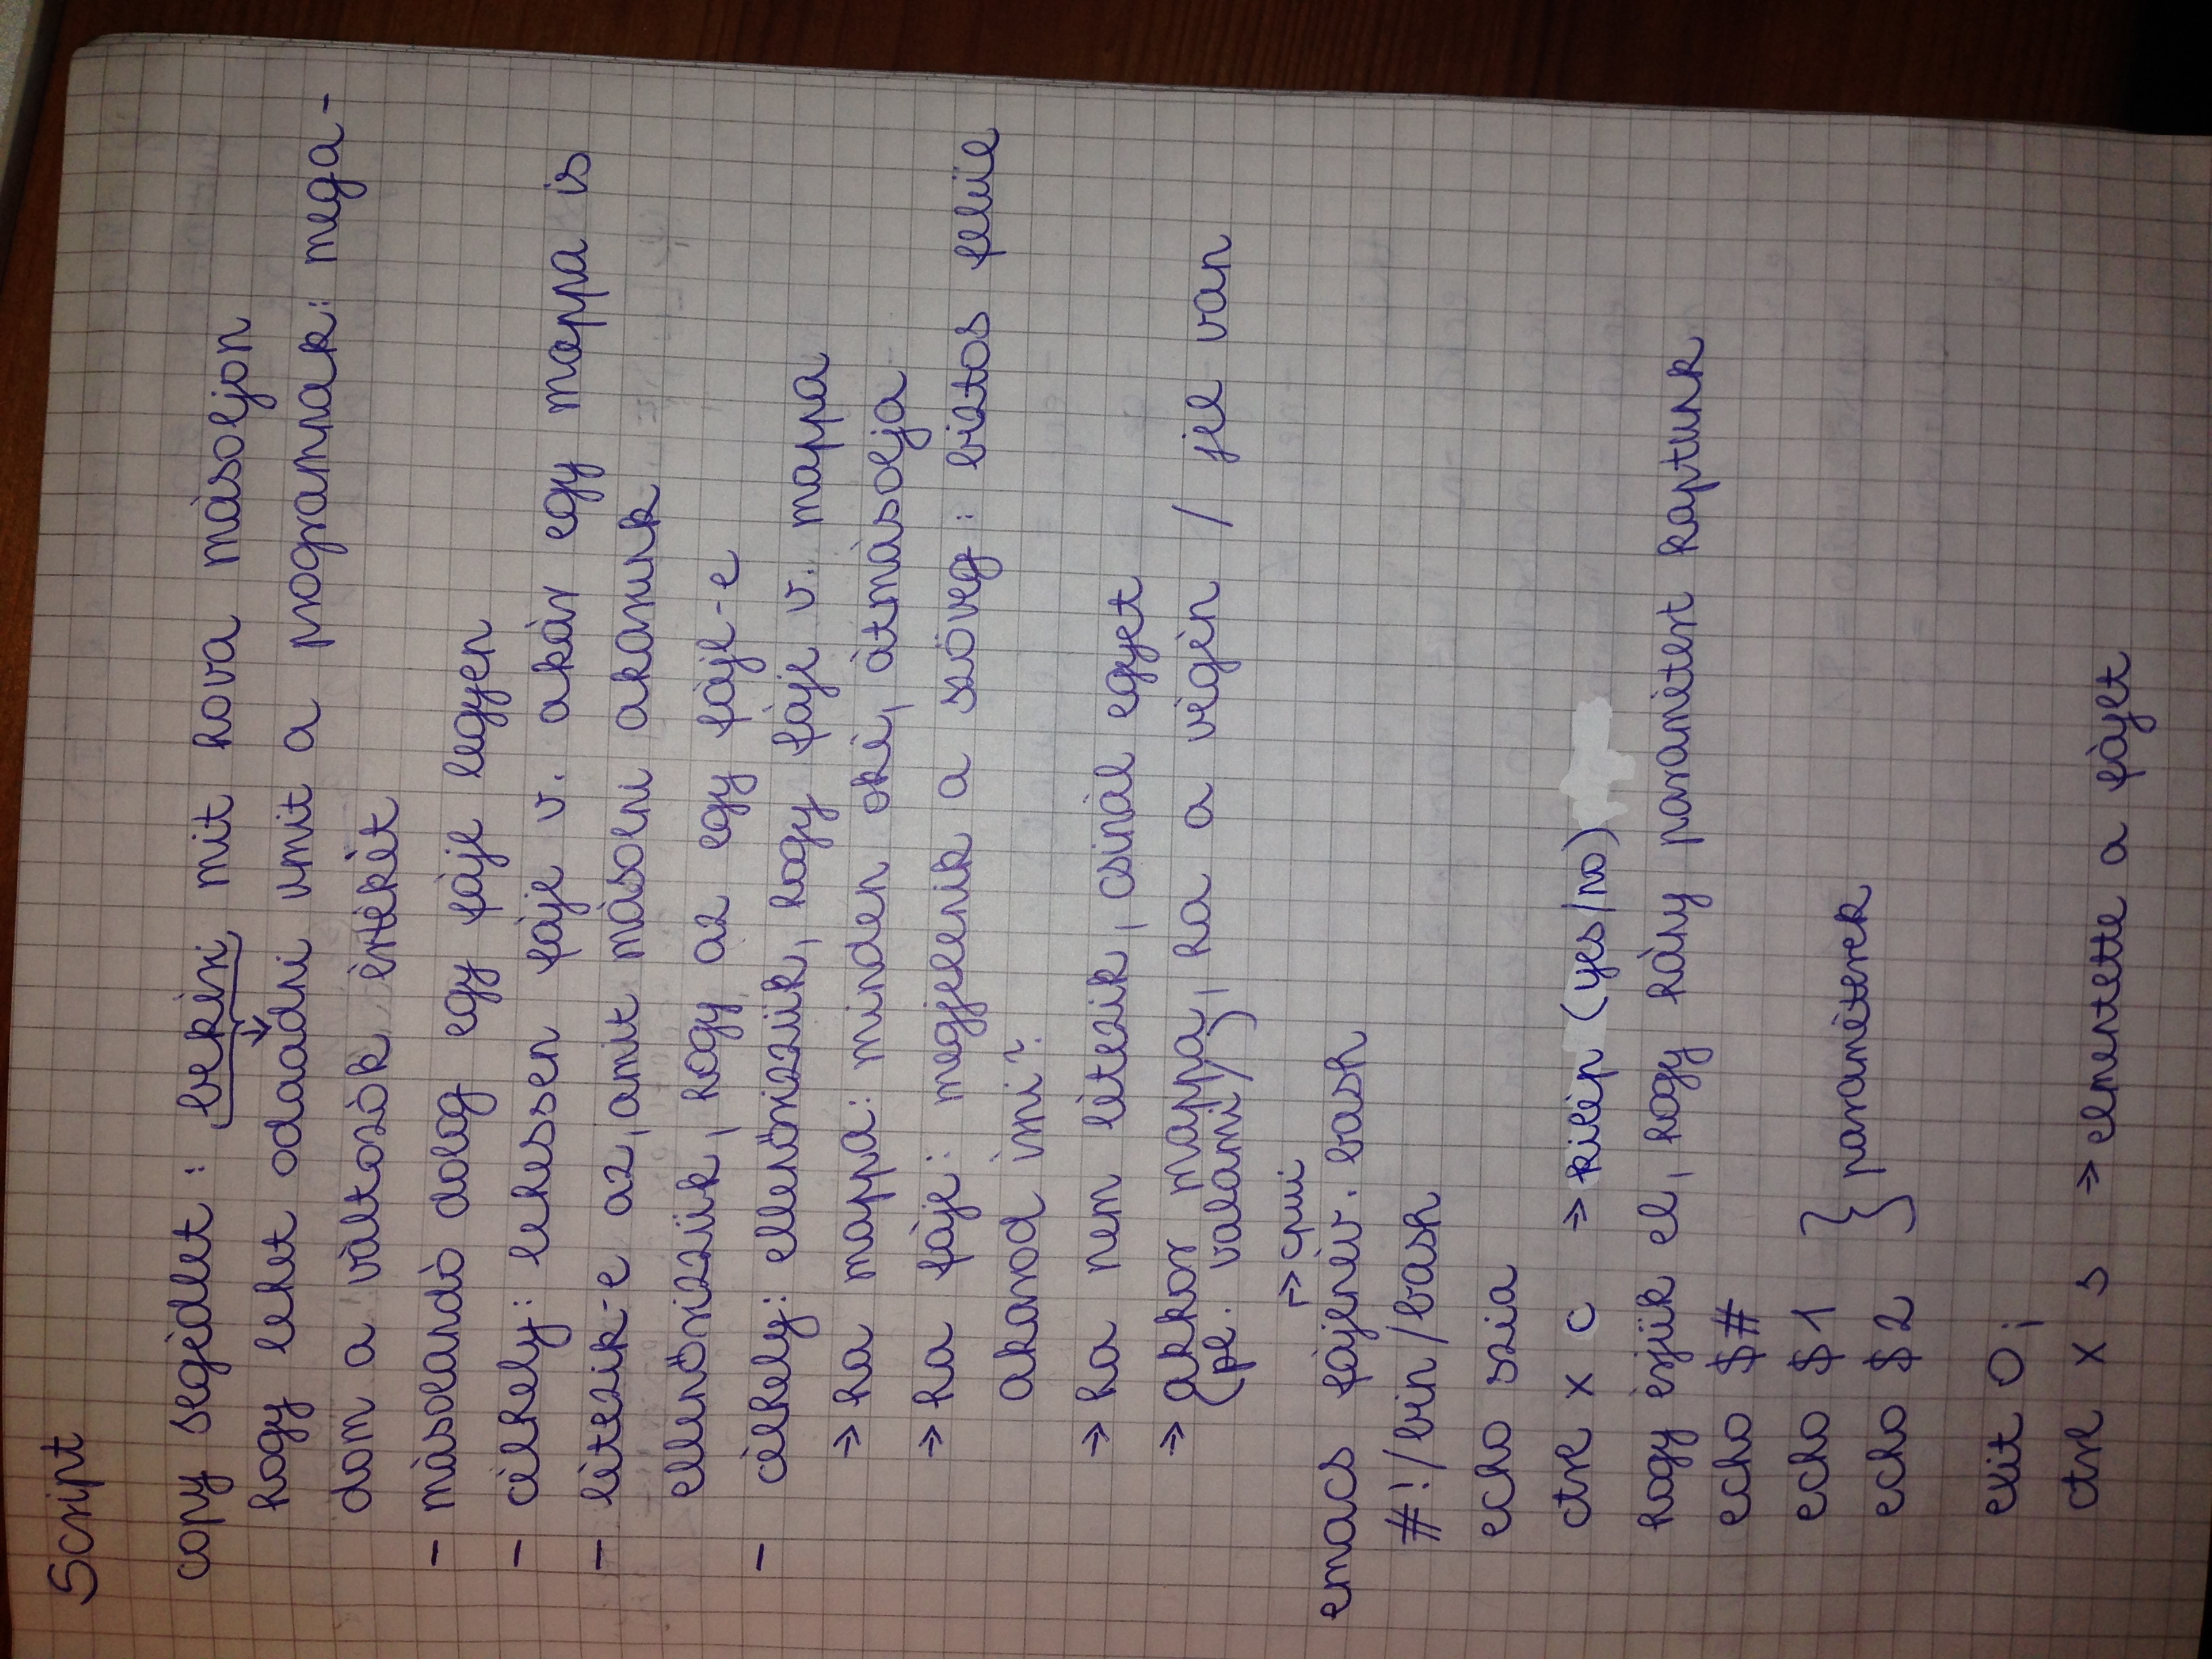 Script
copy segédlet: bekéri mit hova másoljon
hogy lehet odaadni vmit a programnak: mega-
dom a változók értékét
- másolandó dolog egy fájl legyen
- célhely: lehessen fájl v. akár egy mappa is
- létezik-e az, amit másolni akarunk
ellenőrizzük, hogy az egy fájl-e
- célhely: ellenőrizzük, hogy fájl v. mappa
→ ha mappa: minden oké, átmásolja
→ ha fájl: megjelenik a szöveg: biztos felül
akarod írni?
→ ha nem létezik, csinál egyet
→ akkor mappa, ha a végén / jel van
(pl. valami/)
→ cpui
emacs fájlnév.bash
#!/bin/bash
echo szia
ctrl x c → kilép (yes/no)
hogy érjük el, hogy hány paramétert kaptunk
echo $#
echo $1
} paraméterek
echo $2
exit 0;
ctrl x s → elmentette a fájlt